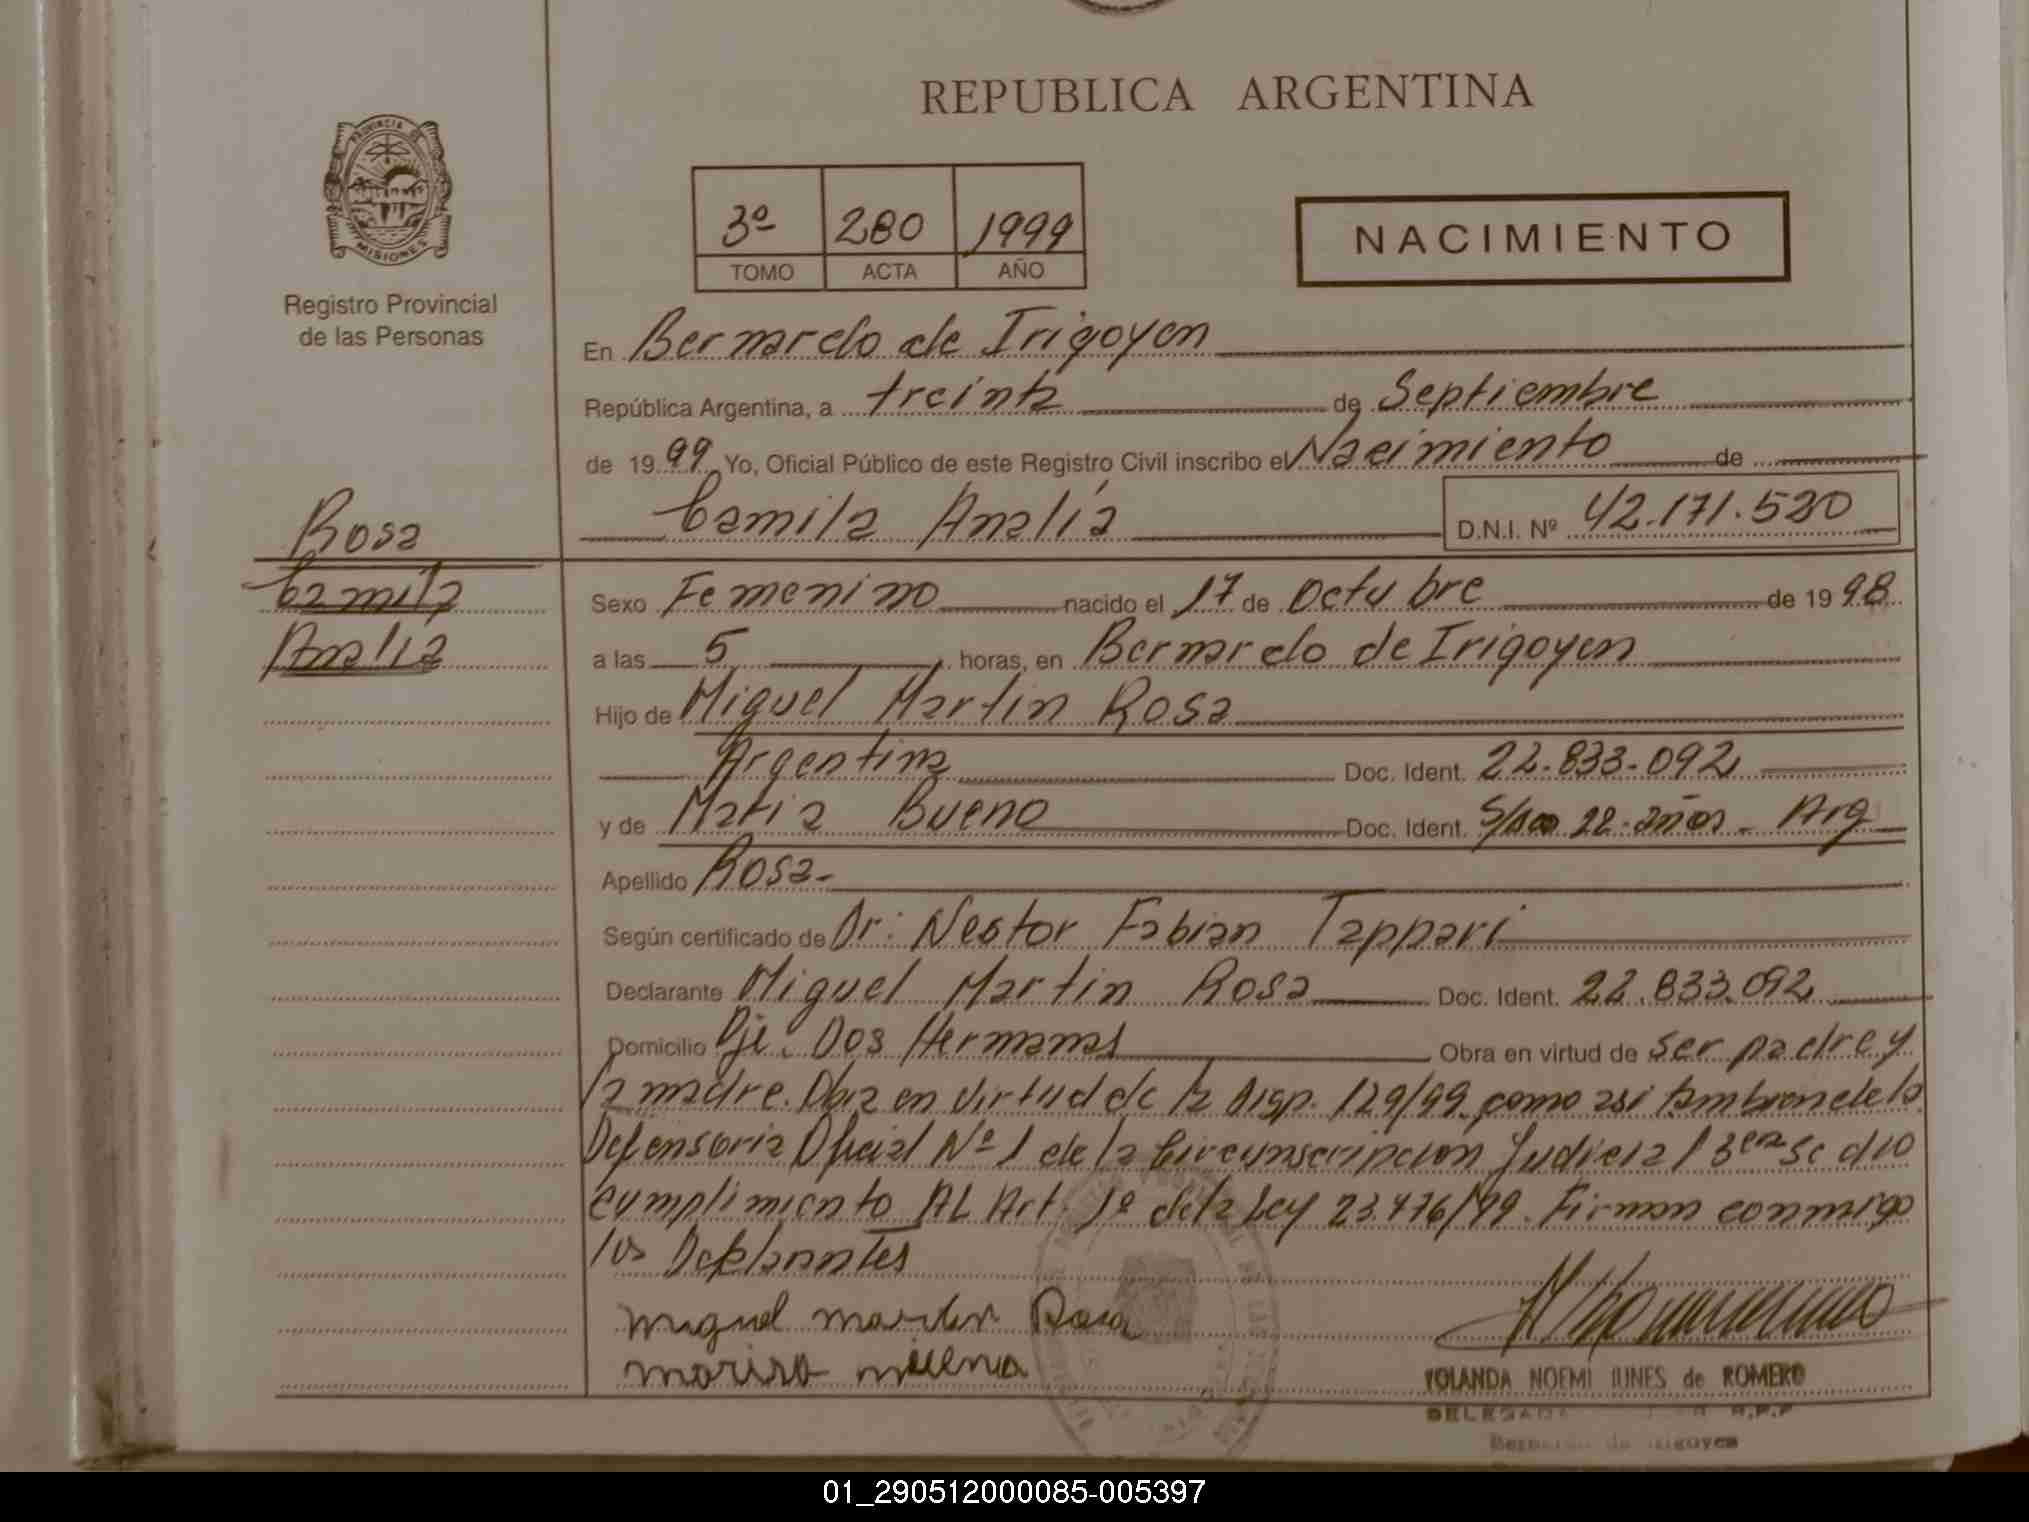 REPUBLICA ARGENTINA
PROVINCIA DE
MISIONES
Registro Provincial
de las Personas
3º 280 1999
TOMO ACTA AÑO
NACIMIENTO
En Bernardo de Irigoyen
República Argentina, a treinta de Septiembre
de 1999 Yo, Oficial Público de este Registro Civil inscribo el Nacimiento de
Camila Analía D.N.I. Nº 42.171.520
Rosa
Camila
Analia
Sexo Femenino nacido el 17 de Octubre de 1998
a las 5 horas, en Bernardo de Irigoyen
Hijo de Miguel Martin Rosa
Argentina Doc. Ident. 22.833.092
y de Maria Bueno Doc. Ident. 22 años - Arg
Apellido Rosa-
Según certificado de Dr: Nestor Fabian Tappari
Declarante Miguel Martin Rosa Doc. Ident. 22.833.092
Domicilio Pje. Dos Hermanas Obra en virtud de ser padre y
la madre. Obra en virtud de la Disp. 129/99 como asi tambien de la
Defensoria Oficial Nº 1 de la Circunscripcion Judicial 3era Se dio
cumplimiento AL Art. 1º de la Ley 23.776/99. Firman conmigo
los Declarantes
Miguel Martin Rosa
YOLANDA NOEMI de ROMERO
DELEGADA
Bernardo de Irigoyen
01_290512000085-005397